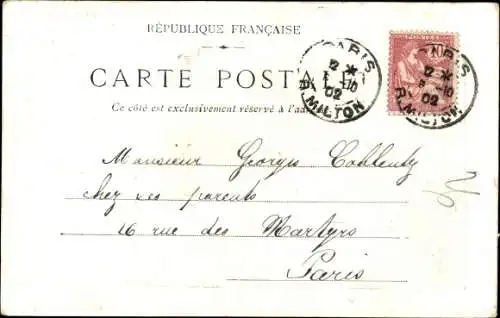 RÉPUBLIQUE FRANÇAISE
CARTE POSTA
Ce côté est exclusivement réservé à l'a
PARIS
12 *
10
02
R. MILTON
POSTES
PARIS
12 *
8 10
02
R. MILTON
Monsieur Georges Coblentz
chez ses parents
26 rue des Martyrs
Paris